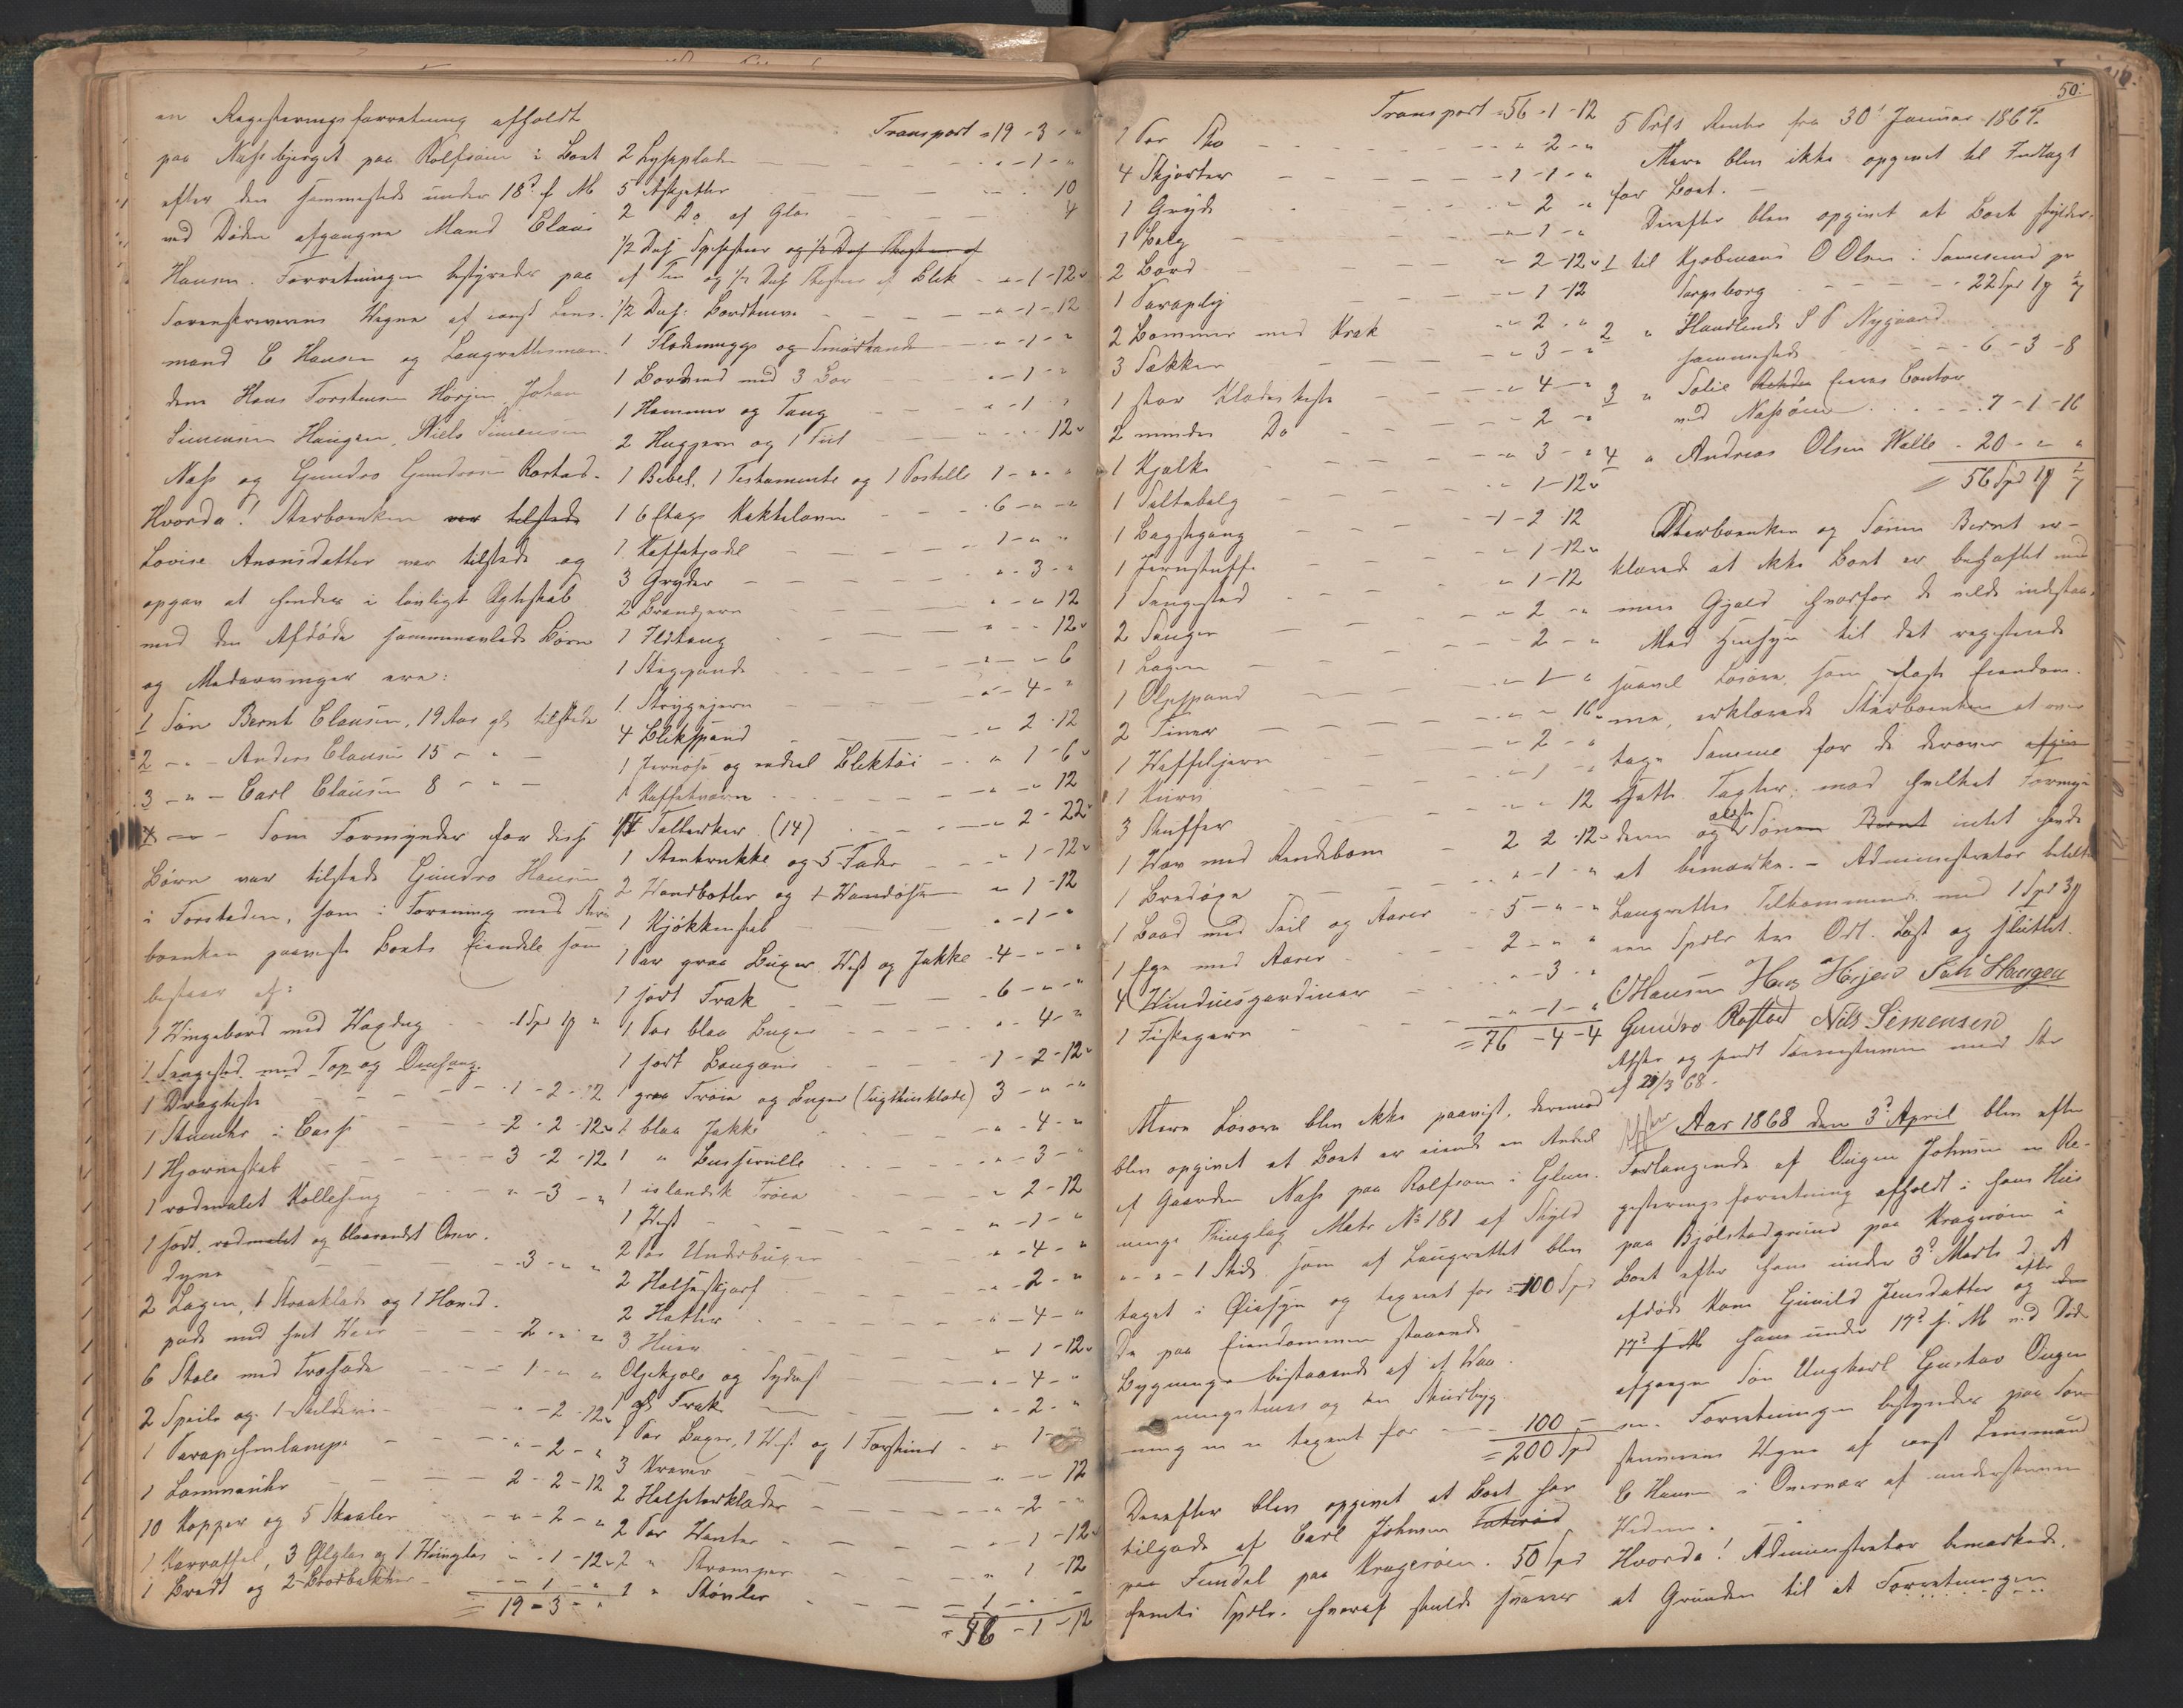 en Registreringsforretning afholdt
paa Næssbjerget paa Rolfsøen i Boet
efter den sammesteds under 18d. f. M
ved Døden afgangne Mand Claus
Hansen. Forretningen bestyredes paa
Sorenskriverens Vegne af const Lens-
mand C Hansen og Laugrettesmæn-
dene Hans Torstensen Horgen, Johan
Simensen Haugen, Niels Simensen
Næss og Gundro Gundrosen Rostad.
Hvorda! Sterboenken var tilstede
Lovise Aronsdatter var tilstede og
opgav at hendes i lovligt Egteskab
med den Afdøde sammenavlede Børn
og Medarvinger ere:
1 Søn Bernt Clausen, 19 Aar gl. tilstede
2 - " - Anders Clausen 15 - " -
3 - " - Carl Clausen 8 - " -
4 - " - Som Formynder for disse
Børn var tilstede Gundro Hansen
i Torsteden, som i Forening med Ster-
boenken paaviste Boets Eiendele som
bestaar af:
1 Vingebord med Voxdug - - 1 Spd 1 β "
1 Sengested med Top og Omhæng
1 Dragkiste - - 1 - 2 - 12
1 Stueuhr i Casse - - 2 - 2 - 12
1 Hjørneskab - - 3 - 2 - 12
1 rødmalet Rolleseng - - " - 3 - "
1 sort, rødmalet og blaarandet Over-
dyne - - 3 - " - "
2 Lagen, 1 Straaklæde og 1 Hoved-
pude med hvit Vaar - - 2 - " - "
6 Stole med Træsæde - - 1 - " - "
2 Speile og 1 Skilderi - - " - 2 - 12
1 Parafinlampe - - " - 2 - "
1 Lommeuhr - - 2 - 2 - 12
10 Kopper og 5 Skaaler - - " - 2 - "
1 Karaffel, 3 Ølglas og 1 Viinglas - - 1 - 12
1 Bredt og 2 Brødbakker - - 1 - "
= 19 - 3 - "
Transport = 19 - 3 - "
2 Lyseplader - - " - 1 - "
5 Asjetter - - 10
2 Do af Glas - - 4
1/2 Dus. Spiseskeer og 1/2 Dus. Theskeer af
af Tin og 1/2 Dus Theskeer af Blik - - 1 - 12
1/2 Dus: Bordknive - - 1 - 12
1 Flødemugge og Smørkande - - " - 1 - "
1 Borvind med 3 Bor - - " - 1 - "
1 Hammer og Tang - - " - 1 - "
2 Huggjern og 1 Fiil - - 12
1 Bibel, 1 Testamente og 1 Postille 1 - " - "
1 6 Etages Kakkelovn - - 6 - " - "
1 Kaffekjedel - - 1 - " - "
3 Gryder - - " - 3 - "
2 Brandjern - - " - " 12
1 Ildtang - - " - " 12
1 Stegepande - - " - " 6
1 Strygejern - - " - 4 - "
4 Blikspand - - " 2 - 12
1 Jernøse og endeel Bliktøi - - " 1 - 6
1 Kaffekværn - - " - " 12
14 Tallerker (14) - - " 2 - 22
1 Stenkrukke og 5 Fade - - " 1 - 12
2 Vandbøtter og 1 Vandøse - - " 1 - 12
1 Kjøkkenskab - - " - 1 - "
1 Par graa Buxer Vest og Jakke - 4 - " - "
1 sort Frak - - 6 - " - "
1 Par blaa Buxer - - " - 4 - "
1 sort Bougons - - 1 - 2 - 12
1 graa Trøie og Buxer 3 - " - "
1 blaa Jakke - - " - 4 - "
1 " Busserulle - - " - 3 - "
1 islandsk Trøie - - " 2 - 12
1 Vest - - " - 1 - "
2 Par Underbuxer - - " - 4 - "
2 Halseskjærf - - " - 2 - "
2 Hatter - - " - 4 - "
3 Huer - - " 1 - 12
Oljekjole og Sydvest - - " - 4 - "
1 gl Frak - - " - 2 - "
1 Par Buxer, 1 Vest og 1 Forskind - - " 1 - "
3 Kraver - - " - " 12
2 Halstørklæder - - " - 2 - "
2 Par Vanter - - " - 1 - 12
2 " Strømper - - " 1 - 12
1 " Støvler - - 1 - " -
= 56 - 1 - 12
50.
Transport = 56 - 1 - 12
1 Par Sko - - " 2 - "
4 Skjorter - - 1 - 1 - "
1 Gryde - - " 2 "
1 Bælg - - " - 1 - "
2 Bord - - " 2 - 12
1 Paraply - - " 1 - 12
2 Bommer med Krak - - " 2 - "
3 Sække - - " 3 - "
1 stor Klædeskiste - - " 4 - "
2 mindre Do - - 2 - "
1 Kjælke - - " 3 - "
1 Saltebalg - - " 1 - 12
1 Bagstegang - - 1 - 2 - 12
1 Jernstuff - - " 1 - 12
1 Sengested - - " 1 - 12
2 Senger - - " 2 - "
1 Lagen - - " 2 - "
1 Oljespand - - " - 1 - "
2 Tiner - - " - " 16
1 Vaffeljern - - " 2 - "
1 Kurv - - " 1 - "
3 Skuffer - - " - " 12
1 Væv med Rendebom - 2 - 2 - 12
1 Bredøxe - - " - 1 - "
1 Baad med Seil og Aarer - 5 - " - "
1 Ege med Aarer - - 2 - " - "
4 Vinduesgardiner - - " - 3 - "
1 Fiskegarn - - " - 1 - "
= 76 - 4 - 4
Mere Løsøre blev ikke paavist, derimod
blev opgivet at Boet er eiende en Andeel
af Gaarden Næss paa Rolfsøen i Glem-
minge Thinglag Matr No 181 af Skyld
" - " - 1 Skil. som af Laugrettet blev
taget i Øiesyn og taxeret for = 100 Spd
De paa Eiendommen staaende
Bygninger bestaaende af et Vaa-
ningshuus og en Skurbyg-
ning er taxert for - - 100 -
= 200 Spd
Derefter blev opgivet at Boet har
tilgode af Carl Johnsen
paa Femdal paa Kragerøen. 50 Spd
femti Spdlr. hvoraf skulde svares
5 Prcts Renter fra 30' Januar 1867.
Mere blev ikke opgivet til Indtægt
for Boet. -
Derefter blev opgivet at Boet skylder:
1 til Kjøbmand O Olsen i Sannesund pr
Sarpsborg - - - 22 Spd 1 β " 7
2 " Handlende S P Nygaard
sammesteds - - - 6 - 3 - 8
3 " Solie Eieres Contor
ved Næssøen - - 7 - 1 - 16
4 " Andreas Olsen Valle - 20 - " "
= 56 Spd 1 β " 7
Sterboenken og Sønnen Bernt er-
klærede at ikke Boet er behæftet med
mere Gjæld hvorfor de vilde indestaa.
Med Hensyn til det registrerede
saavel Løsøre som faste Eiendom-
me, erklærede Sterboenken at over-
tage Samme for de derover
satte Taxter; mod hvilket Formyn-
deren og ældste Sønnen Bernt intet havde
at bemærke. - Administrator betalte
Laugrettes Tilkommende med 1 Spd 3 β
een Spdlr tre Ort. Læst og sluttet.
CHansen Hans Horjen Joh Haugen
Gundro Rostad Nils Simensen
Afskr og sendt Sorenskriveren med Skr
af 21/3 68.
Afskr Aar 1868 den 3d. April blev efter
Forlangende af Ougen Johnsen en Re-
gistreringsforretning afholdt i hans Huus
paa Bjølstadgrund paa Kragerøen i
Boet efter hans under 3d. Marts d. A
afdøde Kone Gunild Jensdatter og efter den
17d. f. M hans under 17d. f. M ved Døden
afgangne Søn Ungkarl Gustav Ougen-
sen. Forretningen bestyredes paa Soren-
skriverens Vegne af const Lensmand
C Hansen i Overvær af underskrevne
Vidner. -
Hvorda! Administrator bemærkede,
at Grunden til at Forretningen